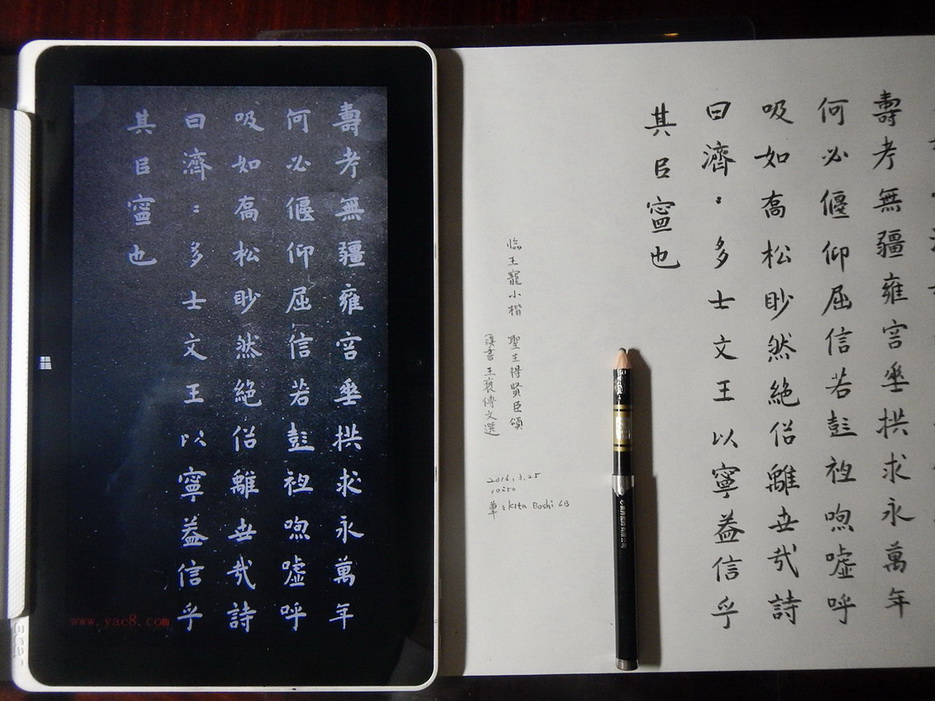 壽考無疆雍容垂拱求永萬年
何必偃仰屈信若彭祖呴噓呼
吸如喬松眇然絶俗離世哉詩
曰濟:多士文王以寧蓋信乎
其臣寍也
www.yac8.com
壽考無疆雍容垂拱求永萬年
何必偃仰屈信若彭祖呴噓呼
吸如喬松眇然絶俗離世哉詩
曰濟:多士文王以寧蓋信乎
其臣寍也
臨王寵小楷 聖主得賢臣頌
漢書王褒傳文選
2016.3.25
筆:Kita Boshi 6B